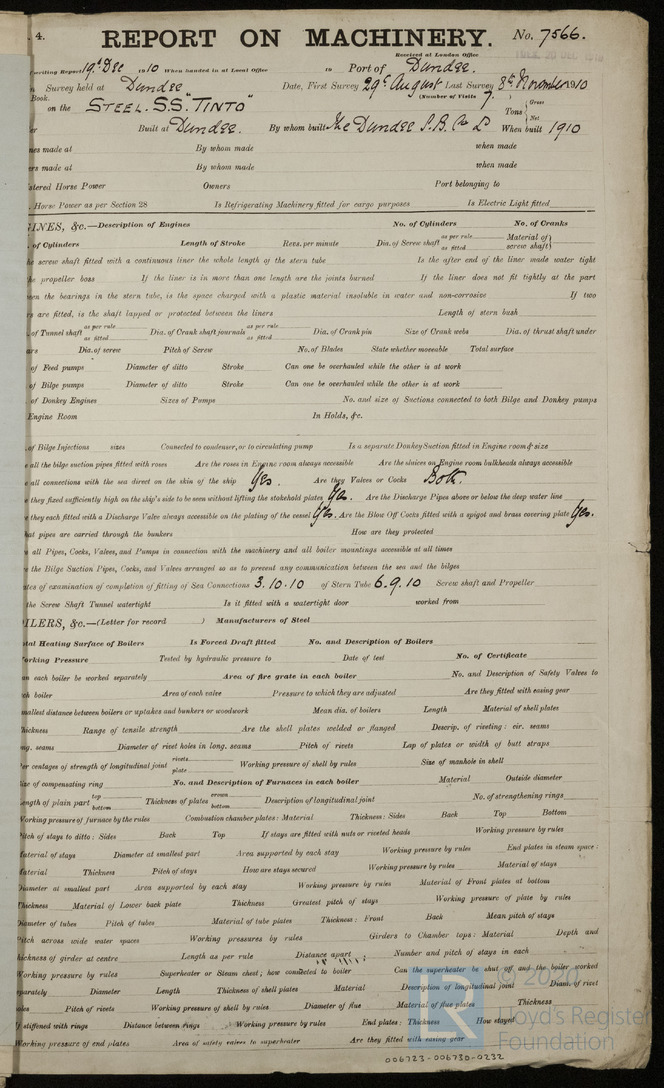 . 4. REPORT ON MACHINERY. No. 7566.
Received at London Office
writing Report 19th Dec 1910 When handed in at Local Office 19 Port of Dundee.
Survey held at Dundee Date, First Survey 29th August Last Survey 8th November 1910
Book. (Number of Visits 7.)
on the STEEL. S.S. "TINTO" Tons { Gross Net
Built at Dundee. By whom built The Dundee S.B. Co Ld When built 1910
made at By whom made when made
made at By whom made when made
stered Horse Power Owners Port belonging to
Horse Power as per Section 28 Is Refrigerating Machinery fitted for cargo purposes Is Electric Light fitted
GINES, &c.—Description of Engines No. of Cylinders No. of Cranks
. of Cylinders Length of Stroke Revs. per minute Dia. of Screw shaft as per rule as fitted Material of screw shaft}
he screw shaft fitted with a continuous liner the whole length of the stern tube Is the after end of the liner made water tight
he propeller boss If the liner is in more than one length are the joints burned If the liner does not fit tightly at the part
en the bearings in the stern tube, is the space charged with a plastic material insoluble in water and non-corrosive If two
rs are fitted, is the shaft lapped or protected between the liners Length of stern bush
. of Tunnel shaft as per rule as fitted Dia. of Crank shaft journals as per rule as fitted Dia. of Crank pin Size of Crank webs Dia. of thrust shaft under
ars Dia. of screw Pitch of Screw No. of Blades State whether moveable Total surface
. of Feed pumps Diameter of ditto Stroke Can one be overhauled while the other is at work
. of Bilge pumps Diameter of ditto Stroke Can one be overhauled while the other is at work
. of Donkey Engines Sizes of Pumps No. and size of Suctions connected to both Bilge and Donkey pumps
Engine Room In Holds, &c.
. of Bilge Injections sizes Connected to condenser, or to circulating pump Is a separate Donkey Suction fitted in Engine room & size
e all the bilge suction pipes fitted with roses Are the roses in Engine room always accessible Are the sluices on Engine room bulkheads always accessible
e all connections with the sea direct on the skin of the ship Yes. Are they Valves or Cocks Both.
e they fixed sufficiently high on the ship's side to be seen without lifting the stokehold plates Yes. Are the Discharge Pipes above or below the deep water line
e they each fitted with a Discharge Valve always accessible on the plating of the vessel Yes. Are the Blow Off Cocks fitted with a spigot and brass covering plate Yes.
hat pipes are carried through the bunkers How are they protected
e all Pipes, Cocks, Valves, and Pumps in connection with the machinery and all boiler mountings accessible at all times
e the Bilge Suction Pipes, Cocks, and Valves arranged so as to prevent any communication between the sea and the bilges
ates of examination of completion of fitting of Sea Connections 3.10.10 of Stern Tube 6.9.10 Screw shaft and Propeller
the Screw Shaft Tunnel watertight Is it fitted with a watertight door worked from
ILERS, &c.—(Letter for record ) Manufacturers of Steel
otal Heating Surface of Boilers Is Forced Draft fitted No. and Description of Boilers
orking Pressure Tested by hydraulic pressure to Date of test No. of Certificate
an each boiler be worked separately Area of fire grate in each boiler No. and Description of Safety Valves to
ch boiler Area of each valve Pressure to which they are adjusted Are they fitted with easing gear
mallest distance between boilers or uptakes and bunkers or woodwork Mean dia. of boilers Length Material of shell plates
hickness Range of tensile strength Are the shell plates welded or flanged Descrip. of riveting: cir. seams
ng. seams Diameter of rivet holes in long. seams Pitch of rivets Lap of plates or width of butt straps
er centages of strength of longitudinal joint rivets plate Working pressure of shell by rules Size of manhole in shell
ize of compensating ring No. and Description of Furnaces in each boiler Material Outside diameter
ength of plain part top bottom Thickness of plates crown bottom Description of longitudinal joint No. of strengthening rings
Working pressure of furnace by the rules Combustion chamber plates: Material Thickness: Sides Back Top Bottom
Pitch of stays to ditto: Sides Back Top If stays are fitted with nuts or riveted heads Working pressure by rules
Material of stays Diameter at smallest part Area supported by each stay Working pressure by rules End plates in steam space:
Material Thickness Pitch of stays How are stays secured Working pressure by rules Material of stays
Diameter at smallest part Area supported by each stay Working pressure by rules Material of Front plates at bottom
Thickness Material of Lower back plate Thickness Greatest pitch of stays Working pressure of plate by rules
Diameter of tubes Pitch of tubes Material of tube plates Thickness: Front Back Mean pitch of stays
Pitch across wide water spaces Working pressures by rules Girders to Chamber tops: Material Depth and
hickness of girder at centre Length as per rule Distance apart Number and pitch of stays in each
Working pressure by rules Superheater or Steam chest; how connected to boiler Can the superheater be shut off and the boiler worked
eparately Diameter Length Thickness of shell plates Material Description of longitudinal joint Diam. of rivet
oles Pitch of rivets Working pressure of shell by rules Diameter of flue Material of flue plates Thickness
If stiffened with rings Distance between rings Working pressure by rules End plates: Thickness How stayed
Working pressure of end plates Area of safety valves to superheater Are they fitted with easing gear
© 2020
Lloyd's Register
Foundation
006723-006730-0232